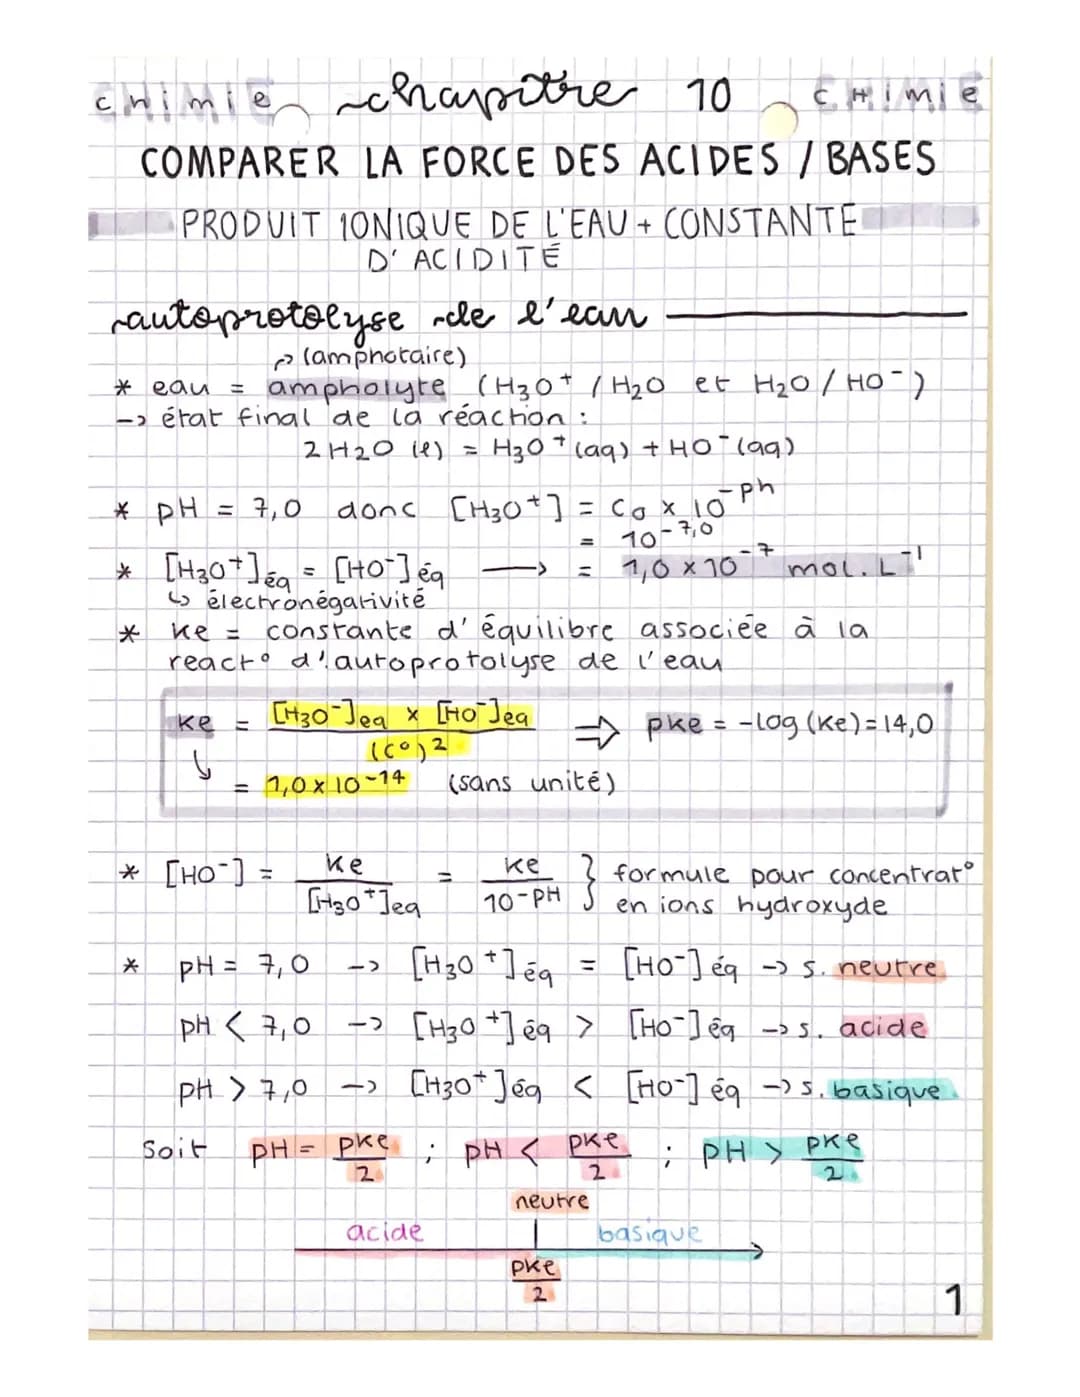 CHIMIE chapitre 10 CHIMIE
COMPARER LA FORCE DES ACIDES / BASES
PRODUIT IONIQUE DE L'EAU + CONSTANTE
D'ACIDITÉ
autoprotolyse de l'eau
↱ (amphotaire)
* eau = ampholyte (H3O+ / H2O et H2O / HO-)
-> état final de la réaction :
2 H2O (l) = H3O+ (aq) + HO- (aq)
* pH = 7,0 donc [H3O+] = C0 x 10^-ph
= 10^-7,0
* [H3O+]éq = [HO-]éq ⟶ = 1,0 x 10^-7 mol.L^-1
↳ électronégativité
* Ke = constante d'équilibre associée à la
react° d'autoprotolyse de l'eau
Ke = [H3O-]eq x [HO-]eq / (C°)^2 ⇒ pKe = -log (Ke) = 14,0
↳ = 1,0 x 10^-14 (sans unité)
* [HO-] = Ke / [H3O+]eq = Ke / 10^-PH } formule pour concentrat°
en ions hydroxyde
* pH = 7,0 -> [H3O+]éq = [HO-]éq -> s. neutre
pH < 7,0 -> [H3O+]éq > [HO-]éq -> s. acide
pH > 7,0 -> [H3O+]éq < [HO-]éq -> s. basique
Soit pH = pKe/2 ; pH < pKe/2 ; pH > pKe/2
neutre
acide basique
pKe/2
1